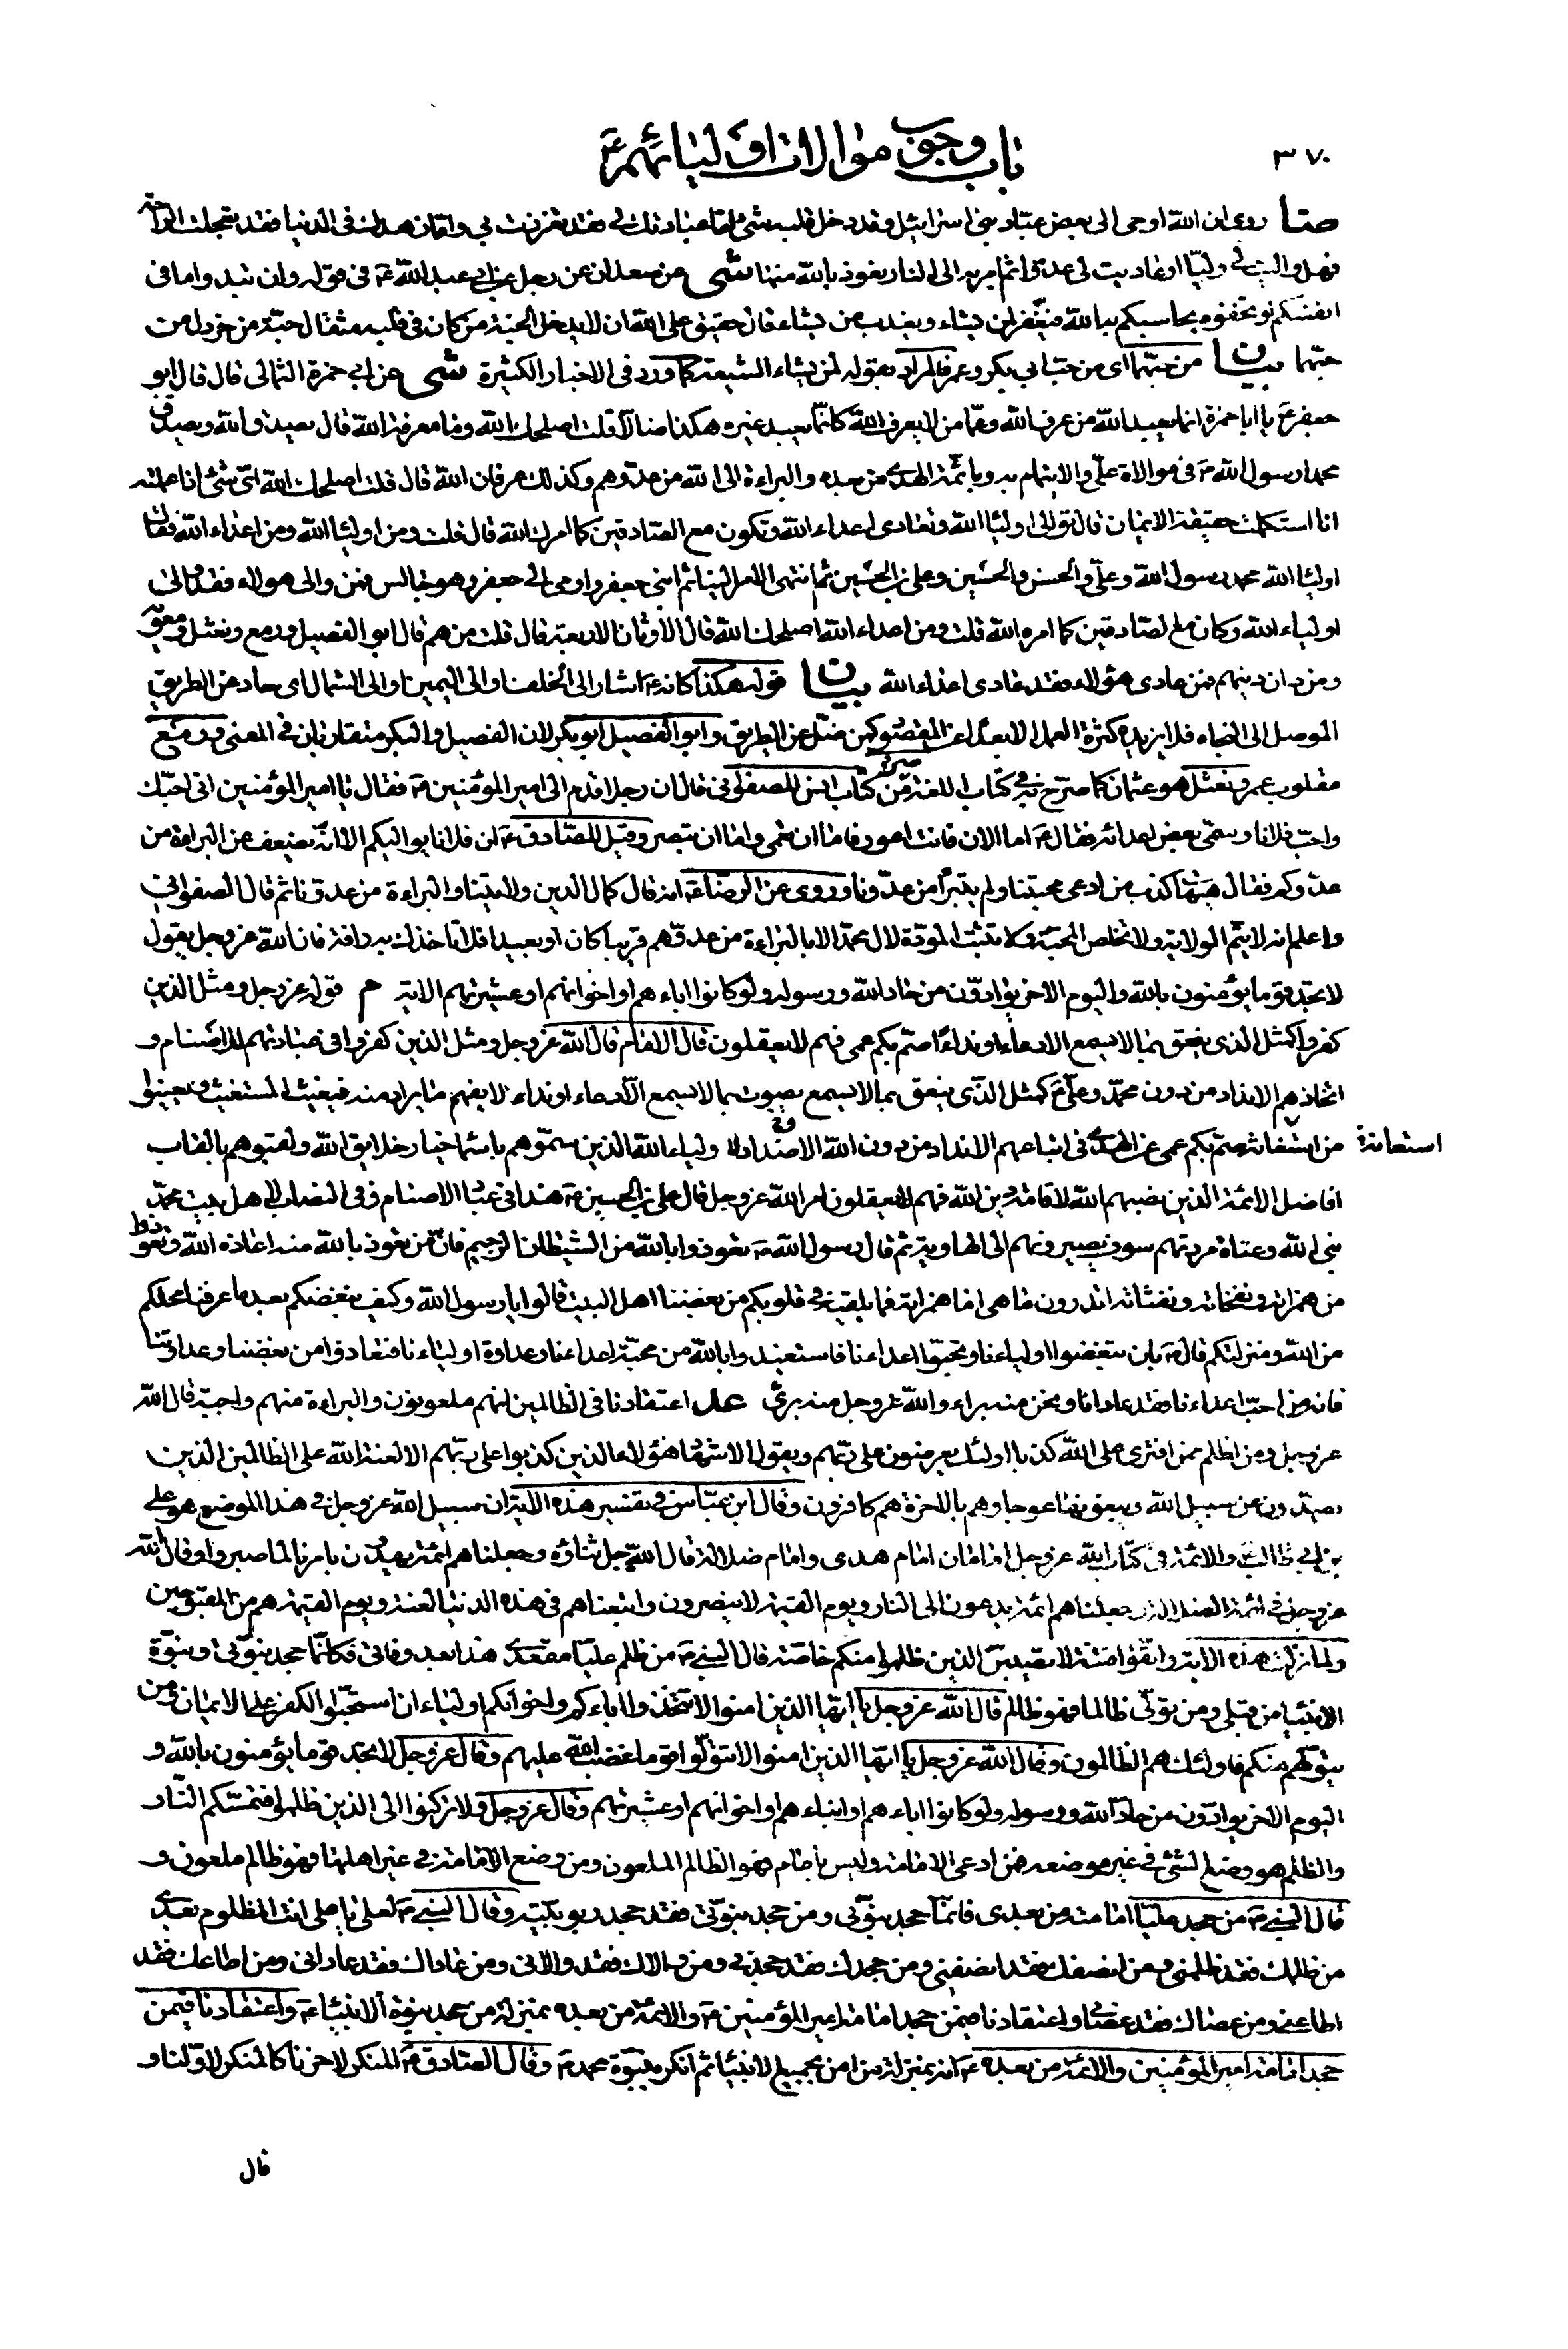 ٣٧٠
باب وجوب موالات اوليائهم ع
ضا روى ان الله اوحى الى بعض عباد بني اسرائيل وقد دخل قلبه شئ اما عبادتك لي فقد تعززت بي واما زهدك في الدنيا فقد تعجلت الراحة
فهل واليت لي وليا او عاديت لي عدوا ثم امر به الى النار نعوذ بالله منها شى عن سعدان عن رجل عن ابي عبد الله ع في قوله وان تبدوا ما في
انفسكم او تخفوه يحاسبكم به الله فيغفر لمن يشاء ويعذب من يشاء قال حقيق على الله ان لا يدخل الجنة من كان في قلبه مثقال حبة من خردل من
حبهما بيان من حبهما اى من حب ابي بكر وعمر فالمراد بقوله لمن يشاء الشيعة كما ورد في الاخبار الكثيرة شى عن ابي حمزة الثمالى قال قال ابو
جعفر ع يا ابا حمزة انما يعبد الله من عرف الله واما من لا يعرف الله كانما يعبد غيره هكذا ضالا قلت اصلحك الله وما معرفة الله قال يصدق الله ويصدق
محمدا رسول الله ص في موالاة علي والايتمام به وبائمة الهدى من بعده والبراءة الى الله من عدوهم وكذلك عرفان الله قال قلت اصلحك الله اى شئ اذا عملته
انا استكملت حقيقة الايمان قال توالى اولياء الله وتعادى اعداء الله وتكون مع الصادقين كما امرك الله قال قلت ومن اولياء الله ومن اعداء الله فقال
اولياء الله محمد رسول الله وعلي والحسن والحسين وعلي بن الحسين ثم انتهى الامر الينا ثم ابني جعفر واومى الى جعفر وهو جالس فمن والى هولاء فقد والى
اولياء الله وكان مع الصادقين كما امره الله قلت ومن اعداء الله اصلحك الله قال الاوثان الاربعة قال قلت من هم قال ابو الفصيل ورمع ونعثل ومعوية
ومن دان دينهم فمن عادى هؤلاء فقد عادى اعداء الله بيان قوله هكذا كانه ع اشار الى الخلف او الى اليمين او الى الشمال اى حاد عن الطريق
الموصل الى النجاه فلا يزيده كثرة العمل الا بعدا عن المقصود كمن ضل عن الطريق وابو الفصيل ابو بكر لان الفصيل والبكر متقاربان في المعنى ورمع
مقلوب عمر ونعثل هو عثمان كما صرح به في كتاب اللغة من كتاب انس للصفواني قال ان رجلا قدم الى امير المؤمنين ص فقال يا امير المؤمنين اني احبك
واحب فلانا وسمى بعض اعدائه فقال ع اما الان فانت اعور فاما ان تعمى واما ان تبصر وقيل للصادق ع ان فلانا يواليكم الا انه يضعف عن البراءة من
عدوكم فقال هيهات كذب من ادعى محبتنا ولم يتبرا من عدونا وروى عن الرضا ع انه قال كمال الدين ولايتنا والبراءة من عدونا ثم قال الصفواني
واعلم انه لا يتم الولاية ولا تخلص المحبة ولا تثبت المودة لال محمد الا بالبراءة من عدوهم قريبا كان او بعيدا فلا تاخذك به رافة فان الله عز وجل يقول
لا تجد قوما يؤمنون بالله واليوم الاخر يوادون من حاد الله ورسوله ولو كانوا اباءهم او اخوانهم او عشيرتهم الاية م قوله عز وجل ومثل الذين
كفروا كمثل الذى ينعق بما لا يسمع الا دعاء ونداء صم بكم عمى فهم لا يعقلون قال الامام قال الله عز وجل ومثل الذين كفروا في عبادتهم للاصنام و
اتخاذهم الانداد من دون محمد وعلي ع كمثل الذى ينعق بما لا يسمع يصوت بما لا يسمع الا دعاء ونداء لا يفهم ما يراد منه فيغيث المستغيث ويعين
استعانة
من استغاثه صم بكم عمى عن الهدى في اتباعهم الانداد من دون الله والاضداد لاولياء الله الذين سموهم باسماء خيار خلايق الله ولقبوهم بالقاب
افاضل الائمة الذين نصبهم الله لاقامة دين الله فهم لا يعقلون امر الله عز وجل قال علي بن الحسين ع هذا في عباد الاصنام وفي النصاب لاهل بيت محمد
نبي الله وعتاة مردتهم سوف يصيرونهم الى الهاوية ثم قال رسول الله ص تعوذوا بالله من الشيطان الرجيم فان من تعوذ بالله منه اعاذه الله وتعوذوا
من همزاته ونفخاته ونفثاته اتدرون ما هى اما همزاته فما يلقيه في قلوبكم من بغضنا اهل البيت قالوا يا رسول الله وكيف نبغضكم بعد ما عرفنا محلكم
من الله ومنزلتكم قال ص بان تبغضوا اولياءنا وتحبوا اعداءنا فاستعيذوا بالله من محبة اعدائنا وعداوة اوليائنا فتعاذوا من بغضنا وعداوتنا
فانه من احب اعداءنا فقد عادانا ونحن منه براء والله عز وجل منه برئ عد اعتقادنا في الظالمين انهم ملعونون والبراءة منهم واجبة قال الله
عز وجل ومن اظلم ممن افترى على الله كذبا اولئك يعرضون على ربهم ويقول الاشهاد هؤلاء الذين كذبوا على ربهم الا لعنة الله على الظالمين الذين
يصدون عن سبيل الله ويبغونها عوجا وهم بالاخرة هم كافرون وقال ابن عباس في تفسير هذه الاية ان سبيل الله عز وجل في هذا الموضع هو علي
بن ابي طالب ع والائمة في كتاب الله عز وجل امامان امام هدى وامام ضلالة قال الله جل ثناؤه وجعلناهم ائمة يهدون بامرنا لما صبروا وقال الله
عز وجل في ائمة الضلالة وجعلناهم ائمة يدعون الى النار ويوم القيمة لا ينصرون واتبعناهم في هذه الدنيا لعنة ويوم القيمة هم من المقبوحين
ولما نزلت هذه الاية واتقوا فتنة لا تصيبن الذين ظلموا منكم خاصة قال النبي ص من ظلم عليا مقعدى هذا بعد وفاتى فكانما جحد نبوتي ونبوة
الانبياء من قبلى ومن تولى ظالما فهو ظالم قال الله عز وجل يا ايها الذين امنوا لا تتخذوا اباءكم واخوانكم اولياء ان استحبوا الكفر على الايمان ومن
يتولهم منكم فاولئك هم الظالمون وقال الله عز وجل يا ايها الذين امنوا لا تتولوا قوما غضب الله عليهم وقال عز وجل لا تجد قوما يؤمنون بالله و
اليوم الاخر يوادون من حاد الله ورسوله ولو كانوا اباءهم او ابناءهم او اخوانهم او عشيرتهم وقال عز وجل ولا تركنوا الى الذين ظلموا فتمسكم النار
والظلم هو وضع الشئ في غير موضعه فمن ادعى الامامة وليس بامام فهو الظالم الملعون ومن وضع الامامة في غير اهلها فهو ظالم ملعون و
قال النبي ص من جحد عليا امامته من بعدى فانما جحد نبوتى ومن جحد نبوتى فقد جحد ربوبيته وقال النبي ص لعلي يا علي انت المظلوم بعدى
من ظلمك فقد ظلمنى ومن انصفك فقد انصفنى ومن جحدك فقد جحدنى ومن والاك فقد والانى ومن عاداك فقد عادانى ومن اطاعك فقد
اطاعنى ومن عصاك فقد عصانى واعتقادنا فيمن جحد امامة امير المؤمنين ص والائمة من بعده بمنزلة من جحد نبوة الانبياء ع واعتقادنا فيمن
جحد امامة امير المؤمنين والائمة من بعده ع انه بمنزلة من امن بجميع الانبياء ثم انكر نبوة محمد ص وقال الصادق ع المنكر لاخرنا كالمنكر لاولنا و
قال